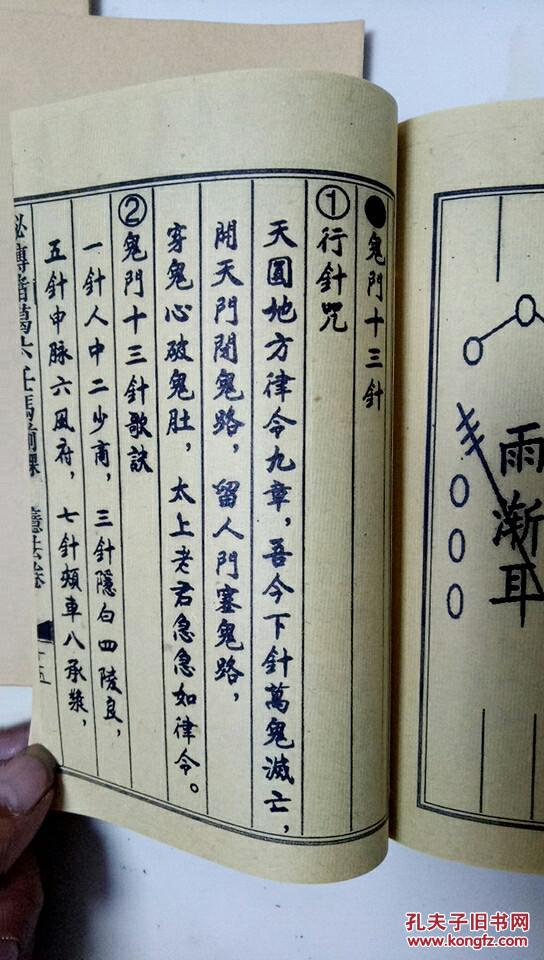 ●鬼門十三針
①行針咒
天圓地方律令九章,吾今下針萬鬼滅亡,
開天門閉鬼路,留人門塞鬼路,
穿鬼心破鬼肚,太上老君急急如律令。
②鬼門十三針歌訣
一針人中二少商,三針隱白四陵良,
五針申脉六風府,七針頰車八承漿,
十五
雨漸耳
孔夫子旧书网
www.kongfz.com